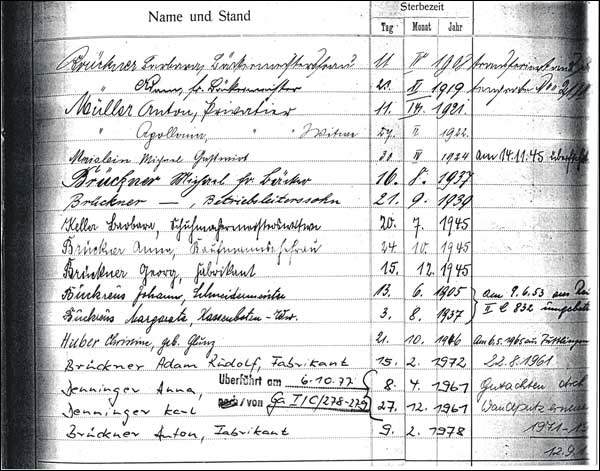 Name und Stand Sterbezeit
Tag Monat Jahr
Brückner Barbara, Bäckermeistersfrau 11. IV 1908
" fr. Bäckermeister 21. II 1919
Müller Anton, Privatier 11. IV. 1921.
" Apollonia, " Witwe 27. II. 1922.
Michael Gastwirt 20. IV 1924 am 14.11.45 überführt
Brückner Michael fr. Bäcker 16. 8. 1937
Brückner — , Betriebsleiterssohn 21. 9. 1939
Keller Barbara, Schuhmachermeisterswitwe 20. 7. 1945
Brückner Anna, Kaufmannsehefrau 24. 10. 1945
Brückner Georg, Fabrikant 15. 12. 1945
Bückreus Johann, Schneidermeister 13. 6. 1905 am 9.6.53 aus
Bückreus Margareta, Kassenboten-Wwe. 3. 8. 1937 II C 832 umgebettet
Huber Christine, geb. Günz 21. 10. 1946 Am 6.5.1965 aus Tuttlingen
Brückner Adam Rudolf, Fabrikant 15. 2. 1972 22.8.1961
Denninger Anna, Überführt am 6.10.77 8. 4. 1961 Gutachten
Denninger Karl /von Ga I/C/278-279 27. 12. 1961 Wandputz
Brückner Anton, Fabrikant 9. 2. 1978 1971-
12.9.